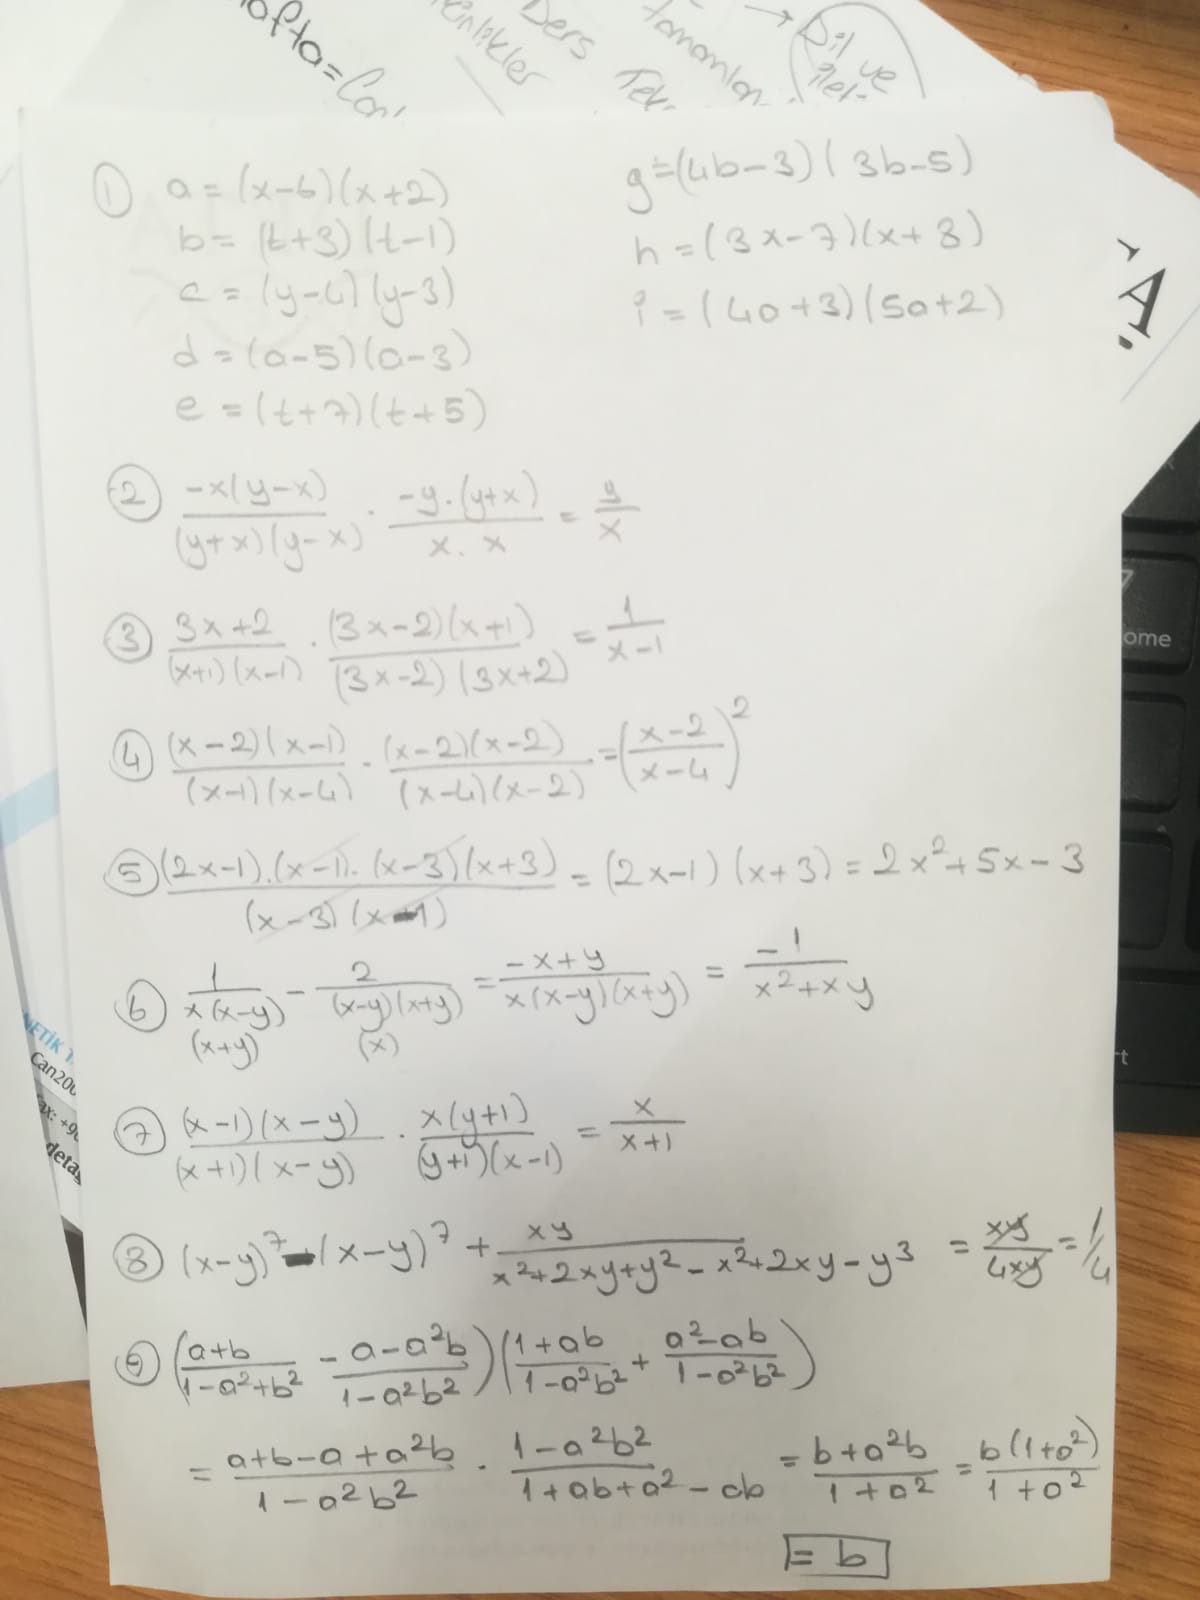 afta=
Ders
Tek
Dil ve
A.
ome
NETİK T
Can200
ax: +9
deta
① a = (x-6)(x+2)
b = (t+3)(t-1)
c = (y-4)(y-3)
d = (a-5)(a-3)
e = (t+7)(t+5)
g = (4b-3)(3b-5)
h = (3x-7)(x+8)
i = (4a+3)(5a+2)
② -x(y-x)/(y+x)(y-x) . -y.(y+x)/x.x = y/x
③ 3x+2/(x+1)(x-1) . (3x-2)(x+1)/(3x-2)(3x+2) = 1/x-1
④ (x-2)(x-1)/(x-1)(x-4) . (x-2)(x-2)/(x-4)(x-2) = (x-2/x-4)²
⑤ (2x-1).(x-1).(x-3)(x+3)/(x-3)(x-1) = (2x-1)(x+3) = 2x²+5x-3
⑥ 1/x(x-y) - 2/(x-y)(x+y) = -x+y/x(x-y)(x+y) = -1/x²+xy
(x+y) (x)
⑦ (x-1)(x-y)/(x+1)(x-y) . x(y+1)/(y+1)(x-1) = x/x+1
⑧ (x-y)⁷-(x-y)⁷ + xy/x²+2xy+y²-x²+2xy-y³ = xy/4xy = 1/4
⑨ (a+b/1-a²+b² - a-a²b/1-a²b²)(1+ab/1-a²b² + a²-ab/1-a²b²)
= a+b-a+a²b/1-a²b² . 1-a²b²/1+ab+a²-ab = b+a²b/1+a² = b(1+a²)/1+a²
= b